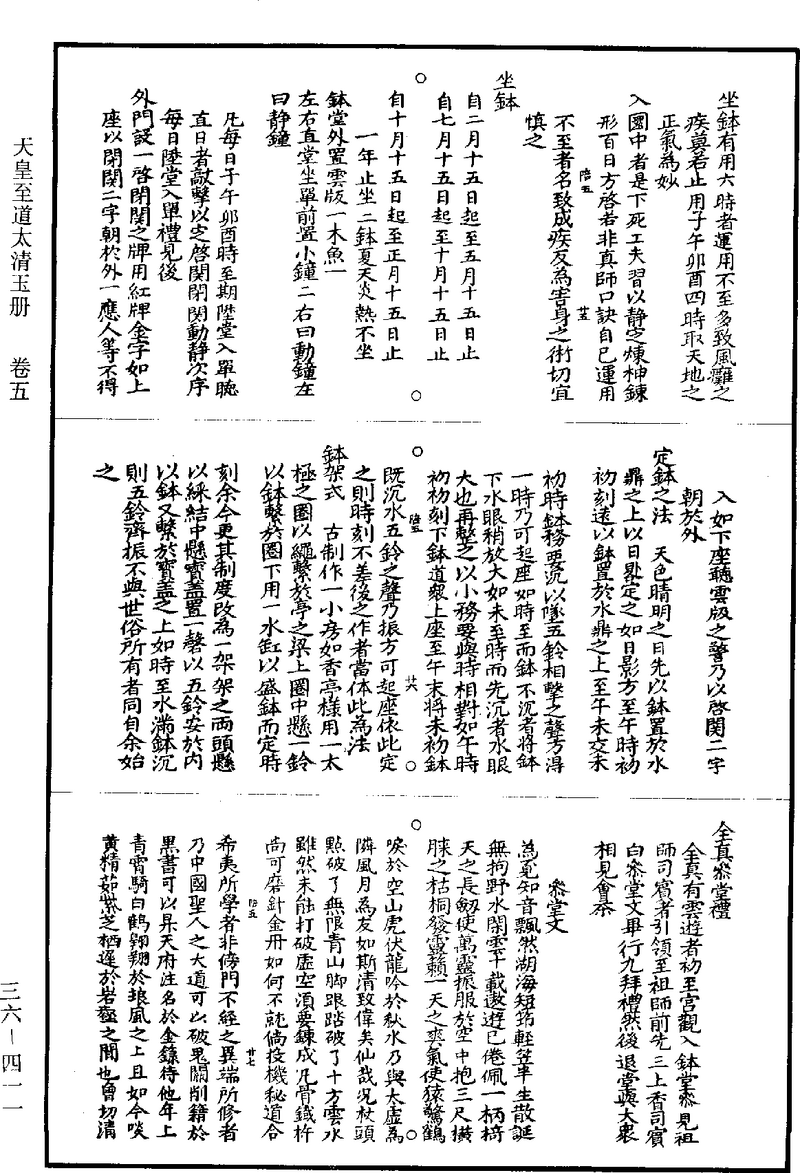 天皇至道太清玉册 卷五
三六—四一一
坐鉢有用六時者運用不至多致風癱之
疾莫若止用子午卯酉四時取天地之
正氣為妙
入圜中者是下死工夫習以静定煉神鍊
形百日方啓若非真師口訣自已運用
不至者名致成疾反為害身之術切宜
慎之
坐鉢
自二月十五日起至五月十五日止
自七月十五日起至十月十五日止
自十月十五日起至正月十五日止
一年止坐二鉢夏天炎熱不坐
鉢堂外置雲版一木魚一
左右直堂坐單前置小鐘二右曰動鐘左
曰静鐘
凡每日子午卯酉時至期陞堂入單聽
直日者敲擊以定啓関閉関動静次序
每日陞堂入單禮見後
外門設一啓閉関之牌用紅牌金字如上
座以閉関二字朝於外一應人等不得
入如下座聽雲版之聲乃以啓関二字
朝於外
定鉢之法 天色晴明之日先以鉢置於水
鼎之上以日晷定之如日影方至午時初
初刻遠以鉢置於水鼎之上至午未交未
初時鉢務要沉以墜五鈴相擊之聲方得
一時乃可起座如時至而鉢不沉者將鉢
下水眼稍放大如未至時而先沉者水眼
大也再整之以小務要與時相對如午時
初初刻下鉢道衆上座至午末將未初鉢
既沉水五鈴之聲乃振方可起座依此定
之則時刻不差後之作者當体此為法
鉢架式 古制作一小房如香亭樣用一太
極之圈以繩繫於亭之梁上圈中懸一鈴
以鉢繫於圈下用一水缸以盛鉢而定時
刻余今更其制度改為一架架之両頭懸
以綵結中懸寶盖置一磬以五鈴安於内
以鉢又繫於寶盖之上如時至水滿鉢沉
則五鈴齊振不與世俗所有者同自余始
之
全真叅堂禮
全真有雲遊者初至宫觀入鉢堂叅見祖
師司賓者引領至祖師前先三上香司賓
白叅堂文畢行九拜禮然後退堂與大衆
相見會茶
叅堂文
為覔知音飄然湖海短筇輕笠半生散誕
無拘野水閑雲千載遨遊已倦佩一柄椅
天之長劔使萬靈振服於空中抱三尺横
膝之枯桐發靈籟一天之爽氣使猿驚鶴
唳於空山虎伏龍吟於秋水乃與太虚為
隣風月為友如斯清致偉矣仙哉况杖頭
點破了無限青山脚跟踏破了十方雲水
雖然未能打破虚空湏要鍊成凡骨鐵杵
尚可磨針金丹如何不就倘投機秘道合
希夷所學者非傍門不經之異端所修者
乃中國聖人之大道可以破鬼關削籍於
黒書可以昇天府注名於金籙待他年上
青霄騎白鶴翱翔於琅風之上且如今啖
黄精茹紫芝栖遲於岩壑之間也曾切清